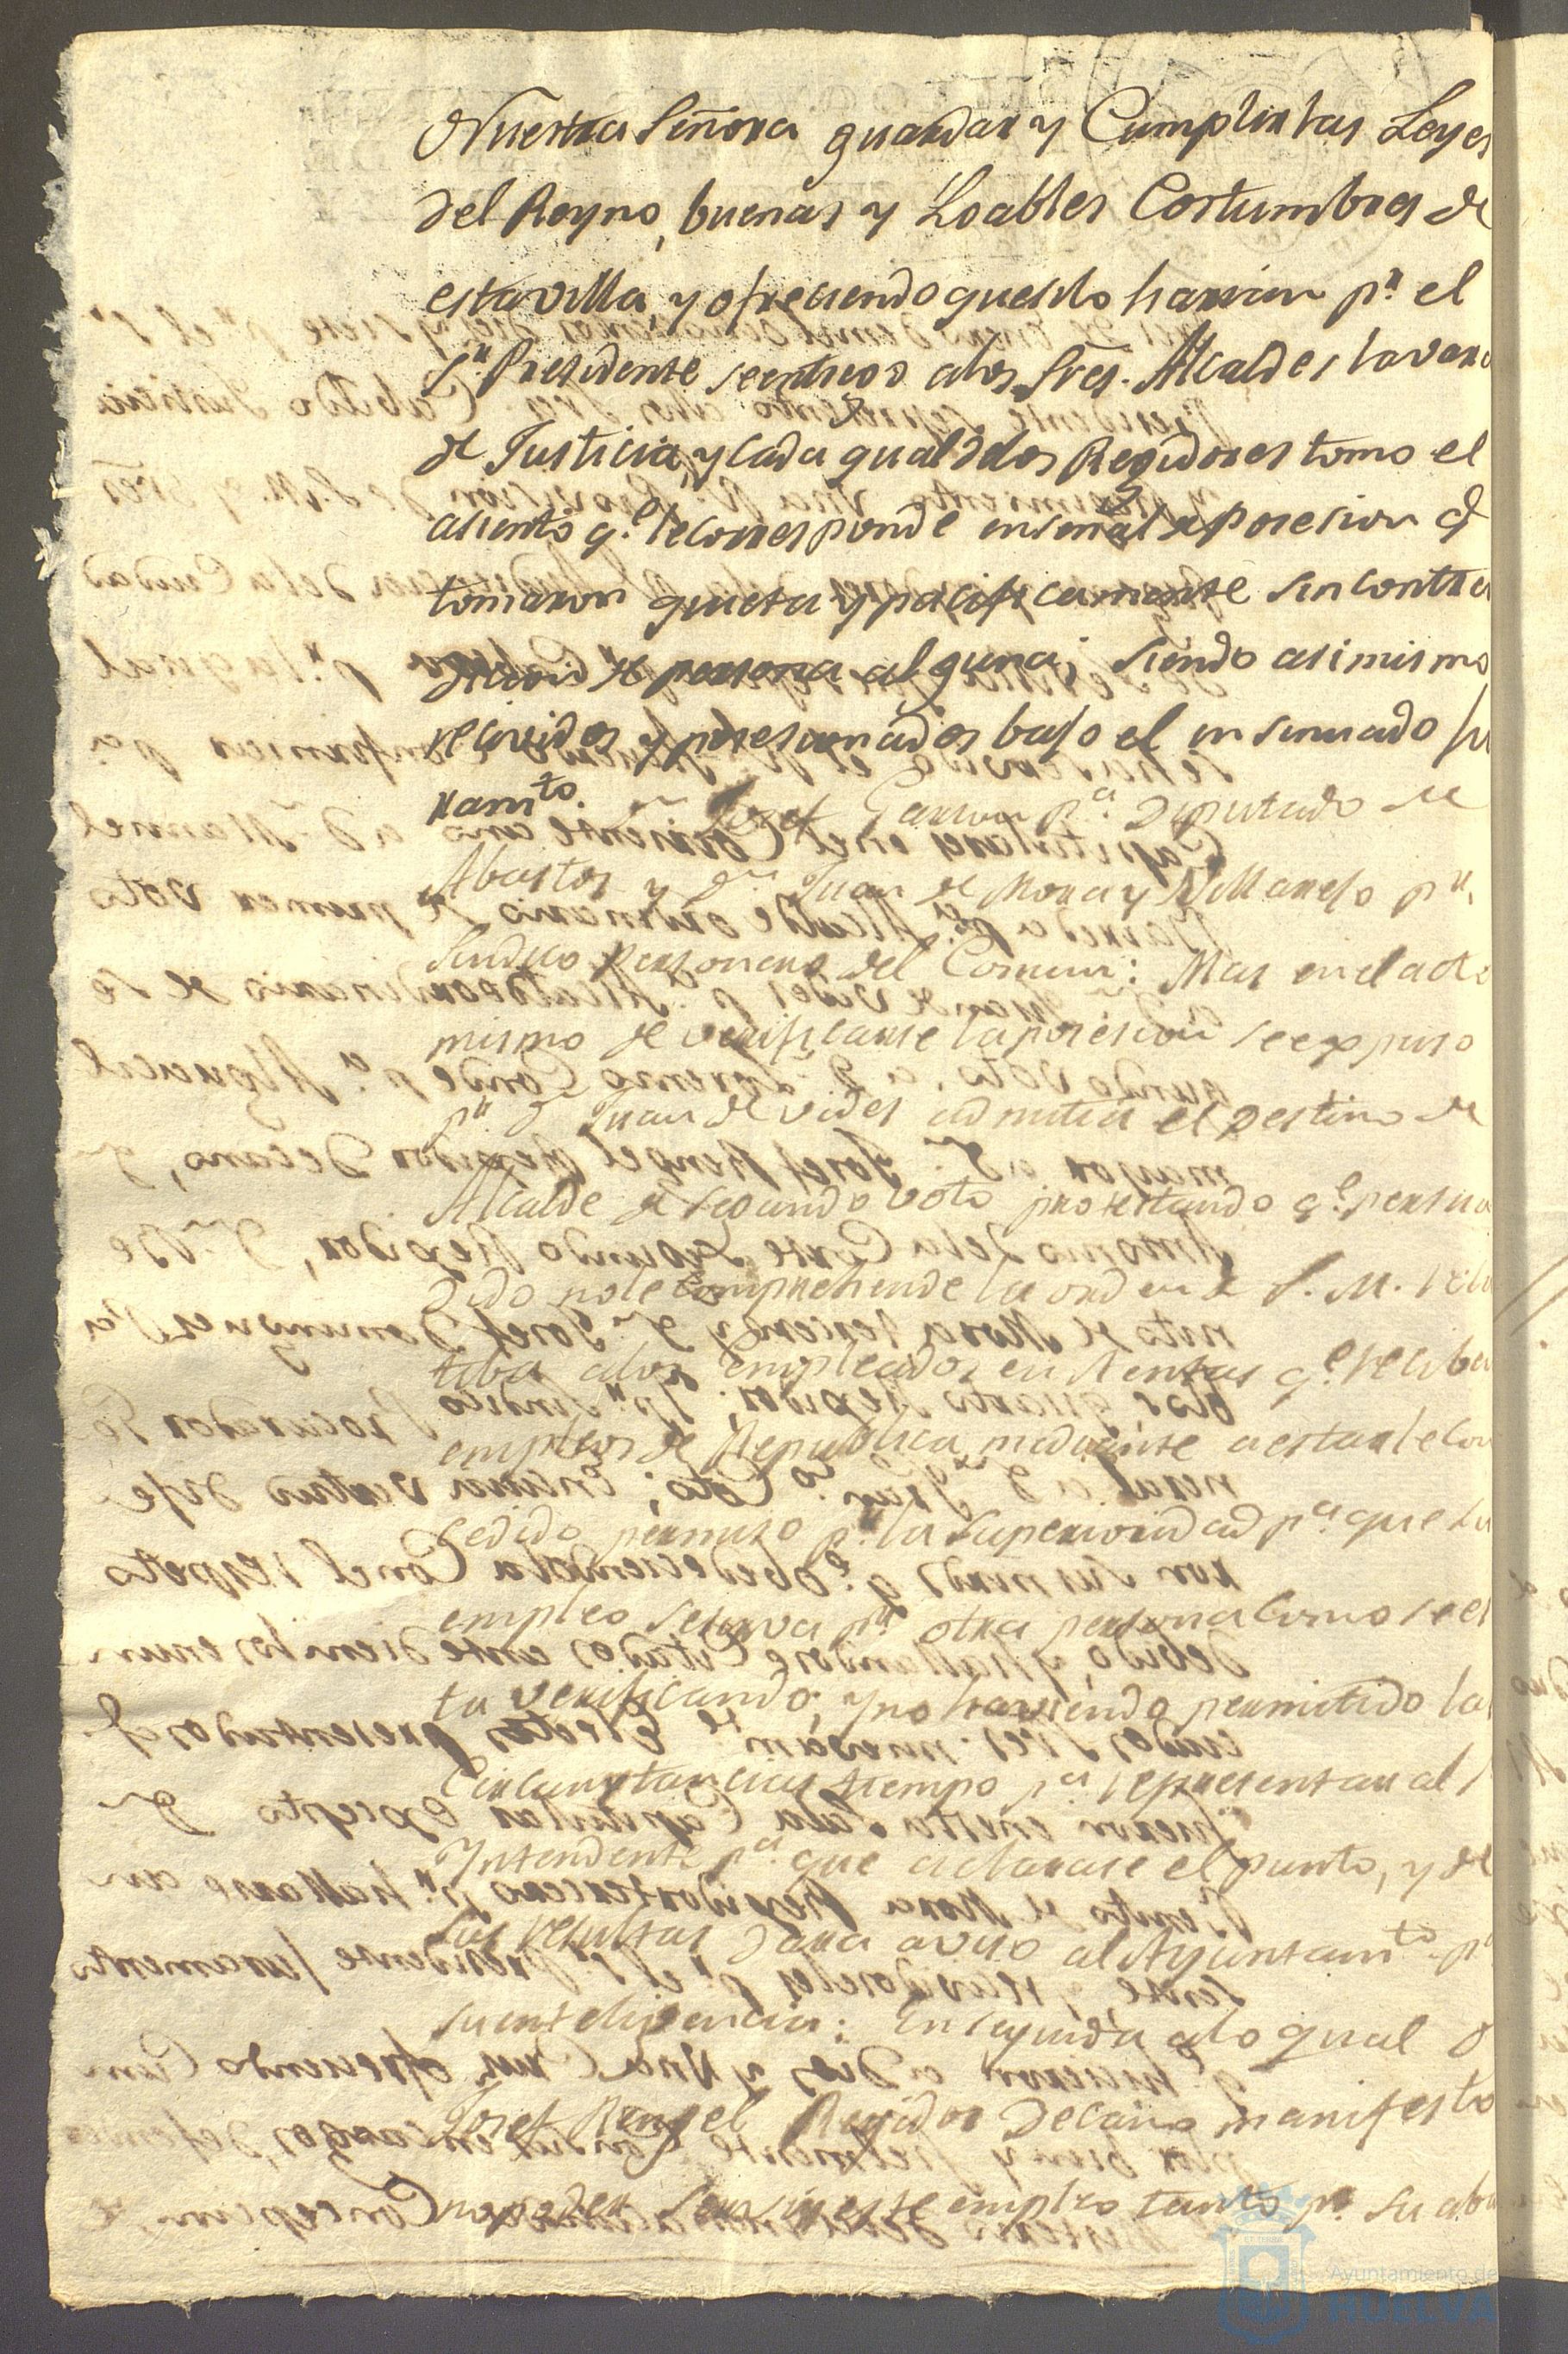 Nuestra Señora guardar y Cumplir las Leyes
del Reyno, buenas y Loables Costumbres de
esta villa, y ofreciendo que asi lo harian pr. el
Sr. Presidente se entregó a los Sres. Alcaldes la vara
de Justicia, y cada qual de los Regidores tomo el
asiento qe. le corresponde en señal de posesion q
tomaron quieta y pacificamente sin contra
diccion de persona alguna; siendo asimismo
recividos y posesionados bajo el insinuado ju
ramto. Dn. Josef Garcia pa. Diputado de
Abastos y Dn. Juan de Mora y Villarejo pr.
Sindico Personero del Comun: Mas en el acto
mismo de verificarse la posesion se expuso
pr. Dn. Juan de Vides admitia el Destino de
Alcalde de Segundo voto protestando qe. persua
dido no le Comprehende la orden de S. M. rela
tiba a los empleados en Rentas qe. reciba
empleos de Republica, mediante a estarle Con
cedido permiso pr. la Superioridad pa. que su
empleo se sirva pr. otra persona Como se es
ta verificando; y no haviendo permitido las
Circunstancias tiempo pa. representar al S
Yntendente pa. que aclarase el punto, y de
sus resultas Dara aviso al Ayuntamto. pa
su inteligencia: En seguida a lo qual D
Josef Rengel Regidor Decano manifesto
no poder servir este empleo tanto pr. su aba
Ayuntamiento de
HUELVA